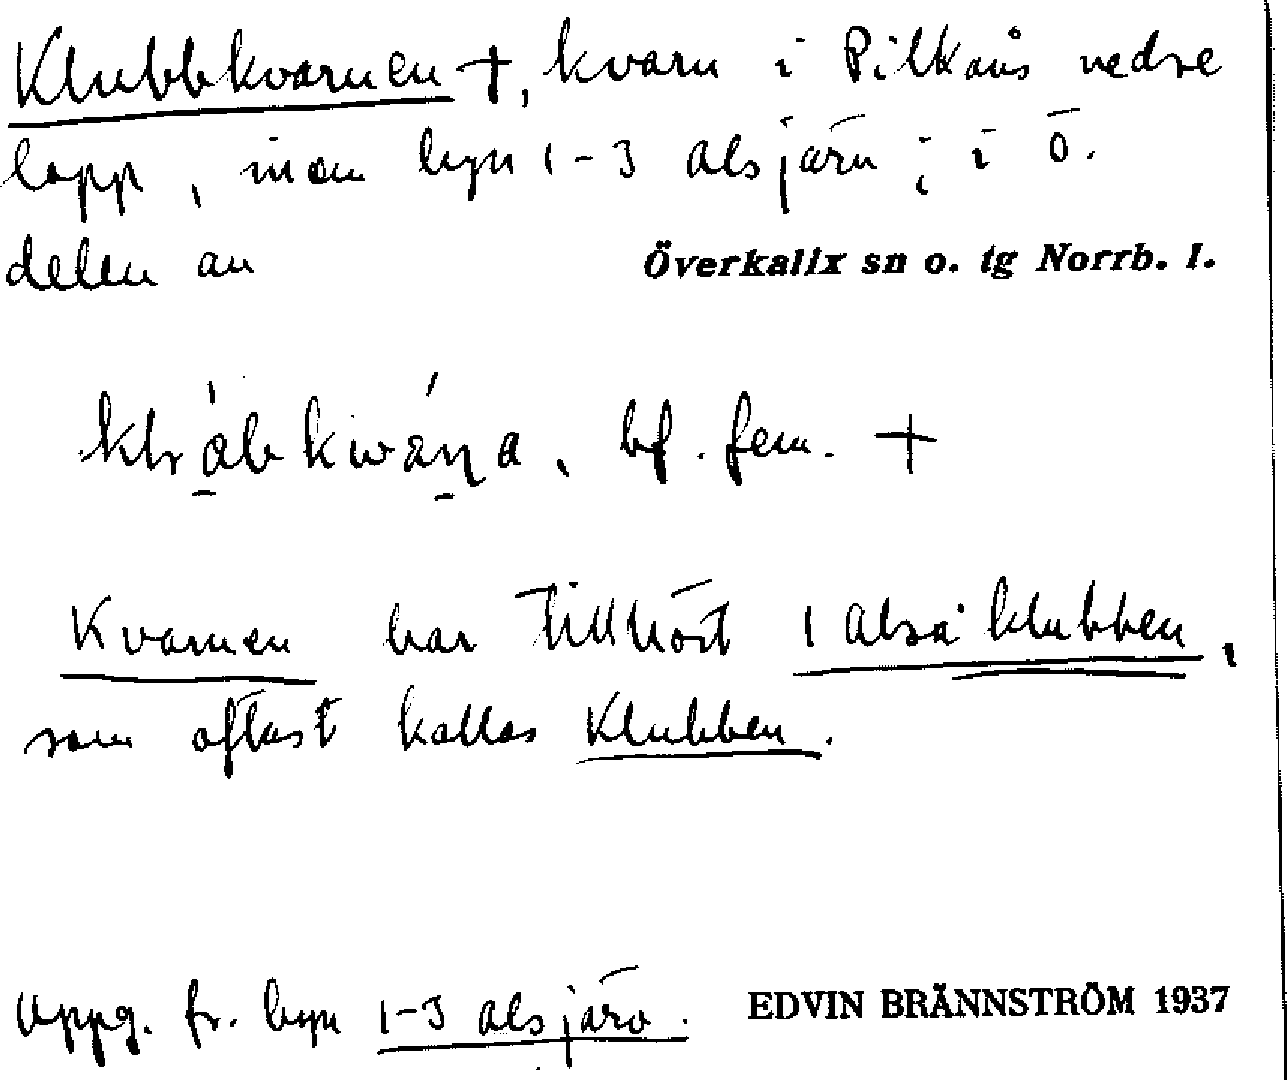 Klubbkvarnen +, kvarn i Pilkåns nedre
lopp, inom byn 1-3 alsjärv; i ö.
delen av
Överkalix sn o. tg Norrb. l.
bf. fem. +
Kvarnen har tillhört 1 alsåklubben,
som oftast kallas Klubben.
Uppg. fr. byn 1-3 alsjärv.
EDVIN BRÄNNSTRÖM 1937